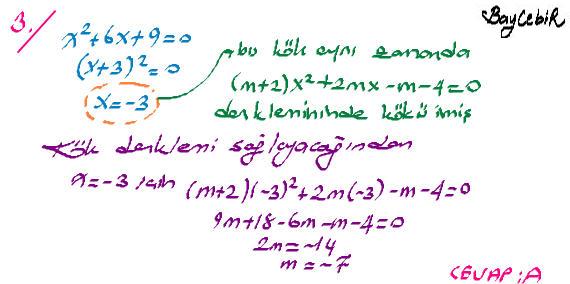 3.
BayCebiR
x²+6x+9=0
(x+3)²=0
x=-3
bu kök aynı zamanda
(m+2)x²+2mx-m-4=0
denkleminin de kökü imiş
Kök denklemi sağlayacağından
x=-3 için (m+2)(-3)²+2m(-3)-m-4=0
9m+18-6m-m-4=0
2m=-14
m=-7
CEVAP:A